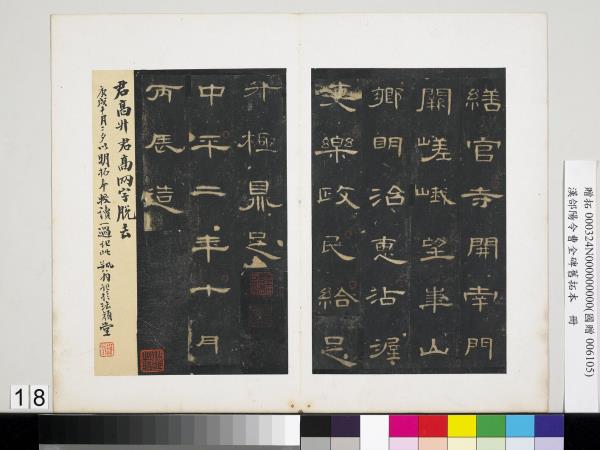 繕官寺開南門
闕嵯峨望華山
鄉明治惠沾渥
吏樂政民給足
君高升極鼎足
中平二年十月
丙辰造
君高升 君高兩字脫去
庚戌十月二夕以明拓本校讀一過記此
贈拓 000324N000000000(國贈 006105)
漢郃陽令曹全碑舊拓本 冊
18